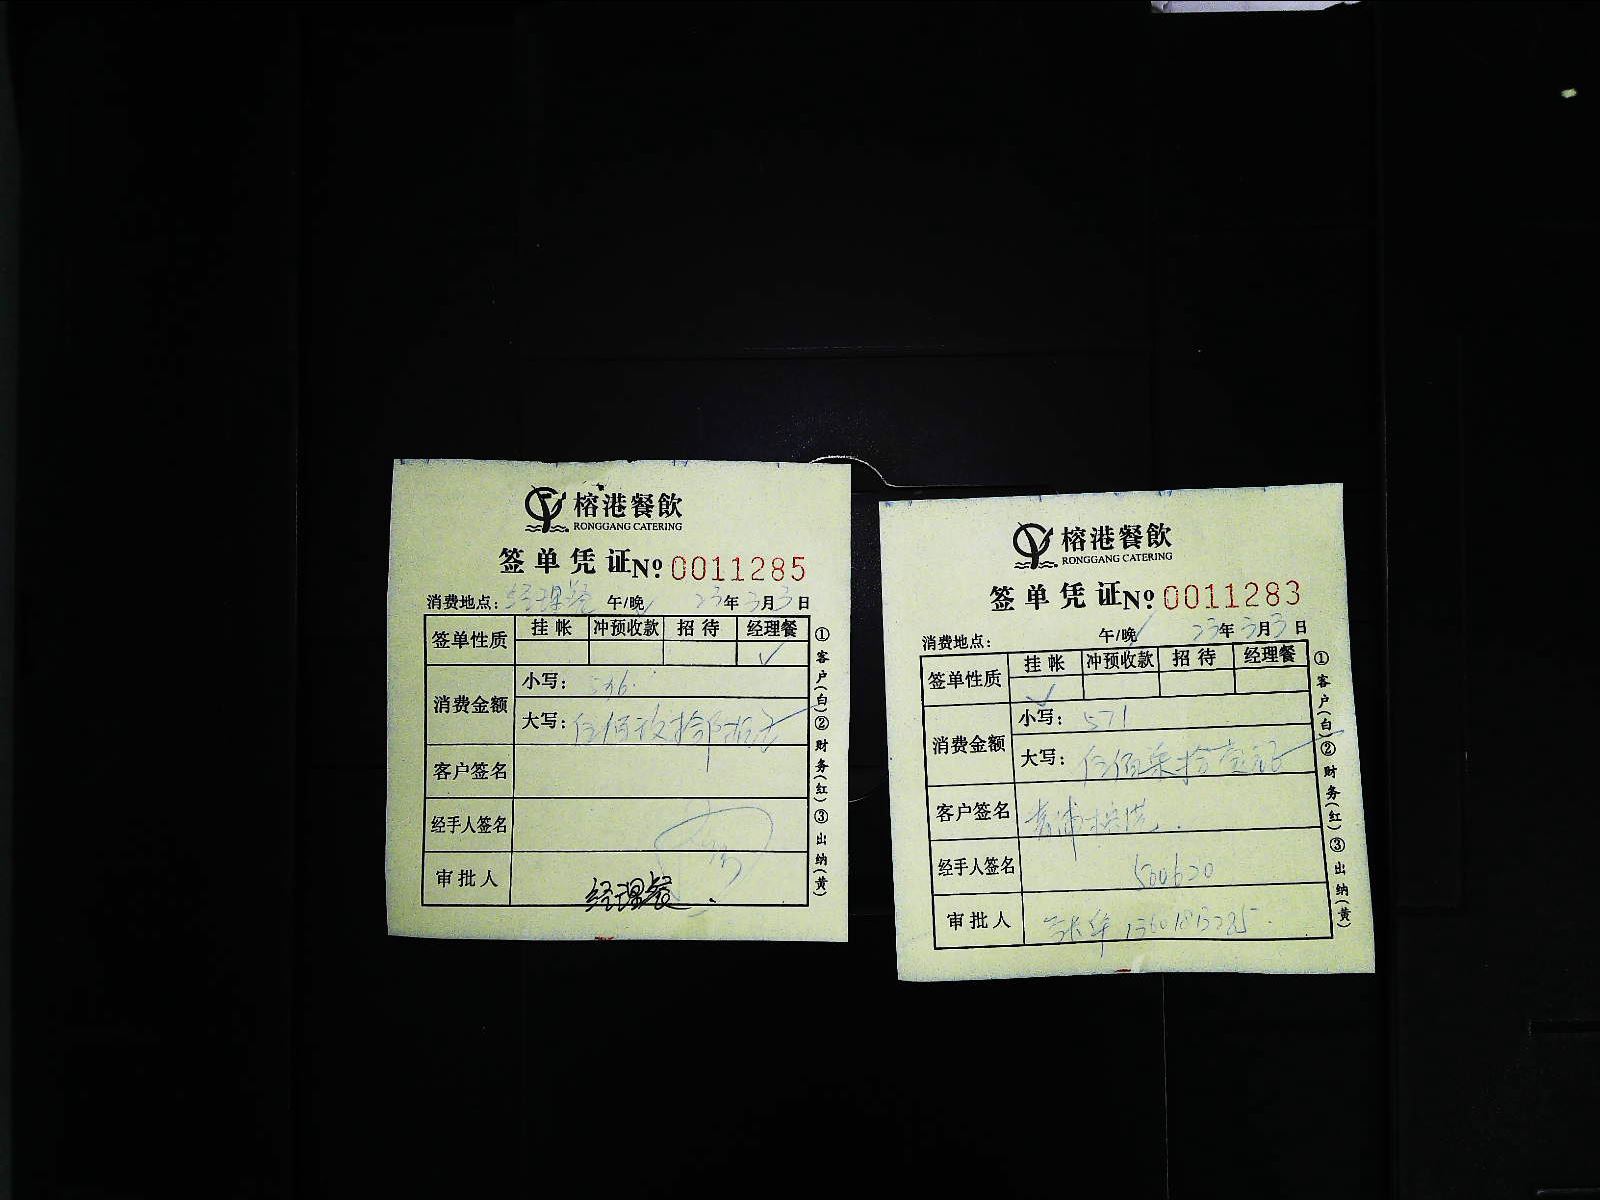 榕港餐飲
RONGGANG CATERING
签单凭证 No 0011285
消费地点: 经理餐 午/晚 23年3月3日
签单性质 挂帐 冲预收款 招待 经理餐
✓
消费金额
小写:
大写:
客户签名
经手人签名
审批人 经理餐.
①客户(白)②财务(红)③出纳(黄)
榕港餐飲
RONGGANG CATERING
签单凭证 No 0011283
消费地点: 午/晚 23年3月3日
签单性质 挂帐 冲预收款 招待 经理餐
✓
消费金额
小写: 571
大写: 伍佰柒拾壹元
客户签名
经手人签名 500620
审批人
①客户(白)②财务(红)③出纳(黄)